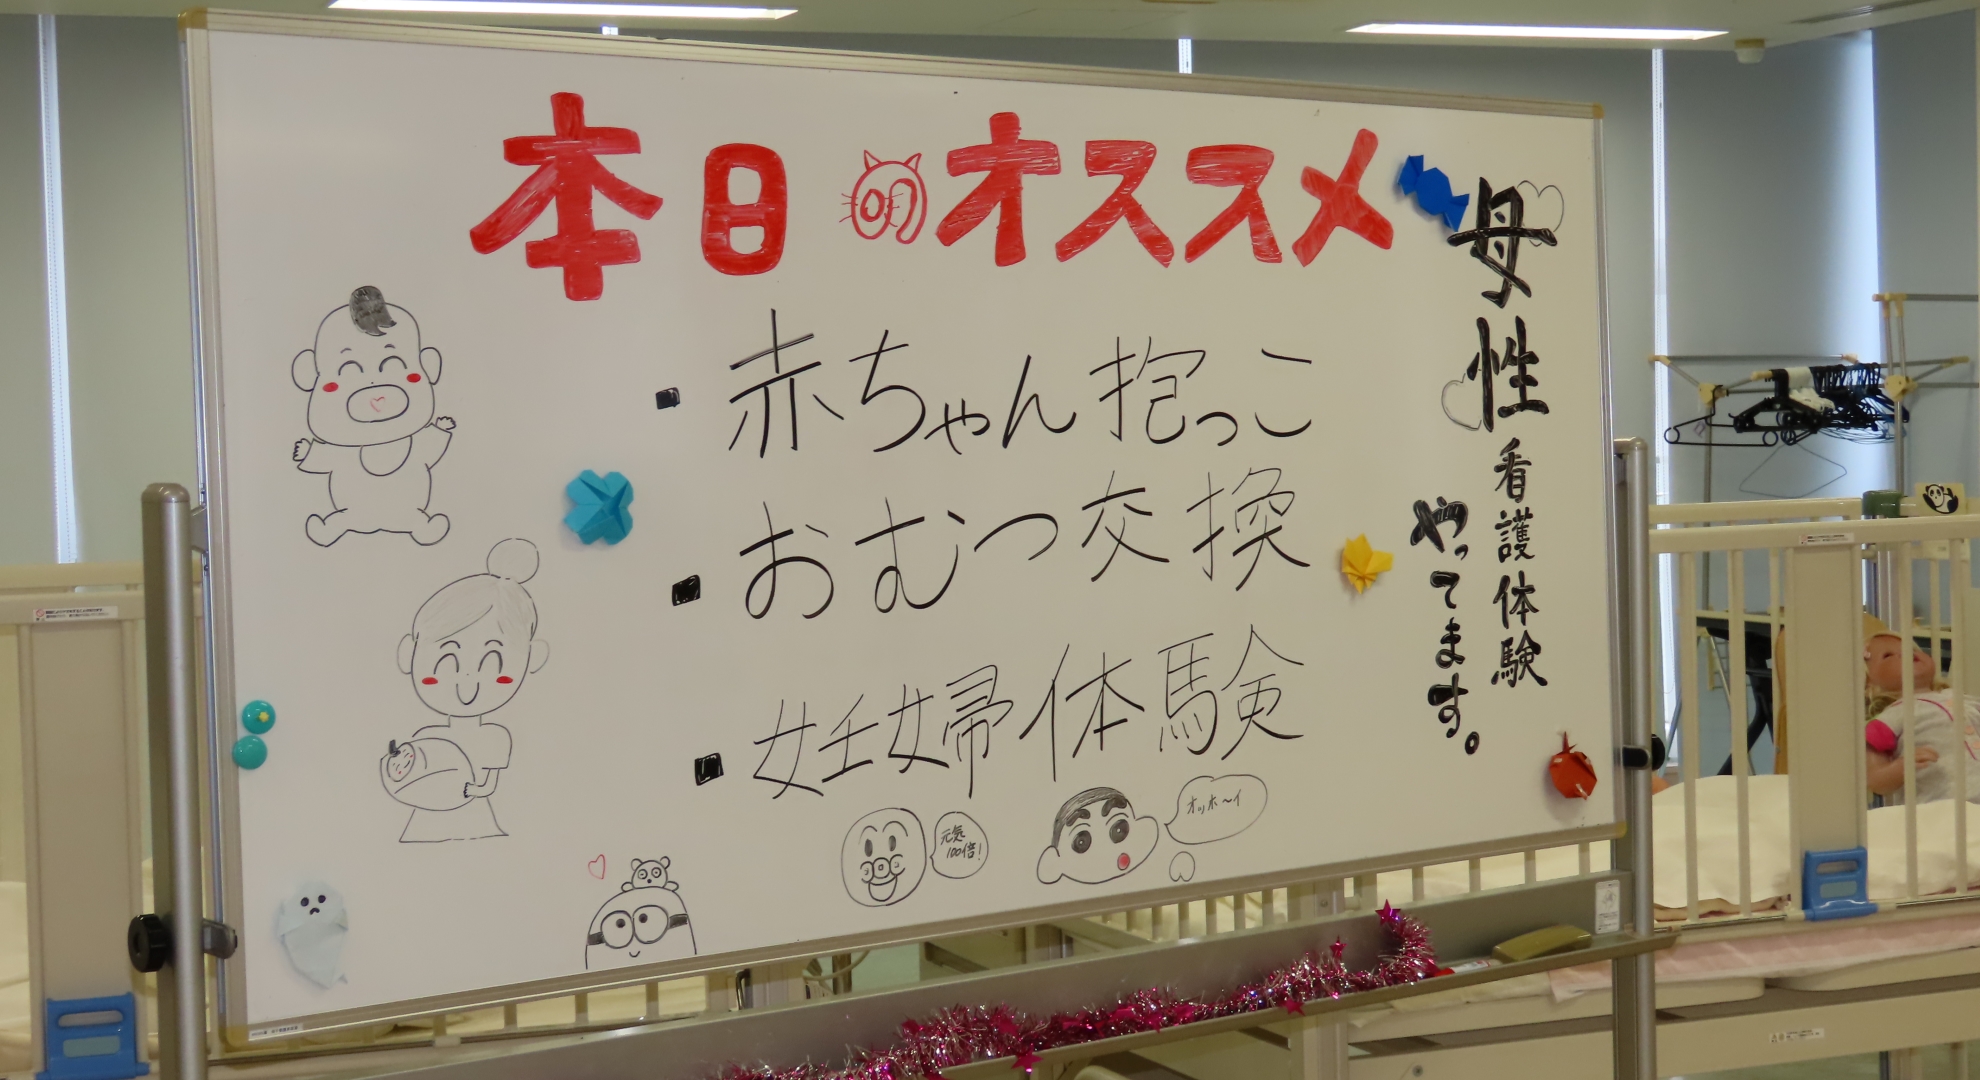 本日のオススメ
母性看護体験
やってます。
▪赤ちゃん抱っこ
▪おむつ交換
▪妊婦体験
元気
100倍!
オッホ〜イ